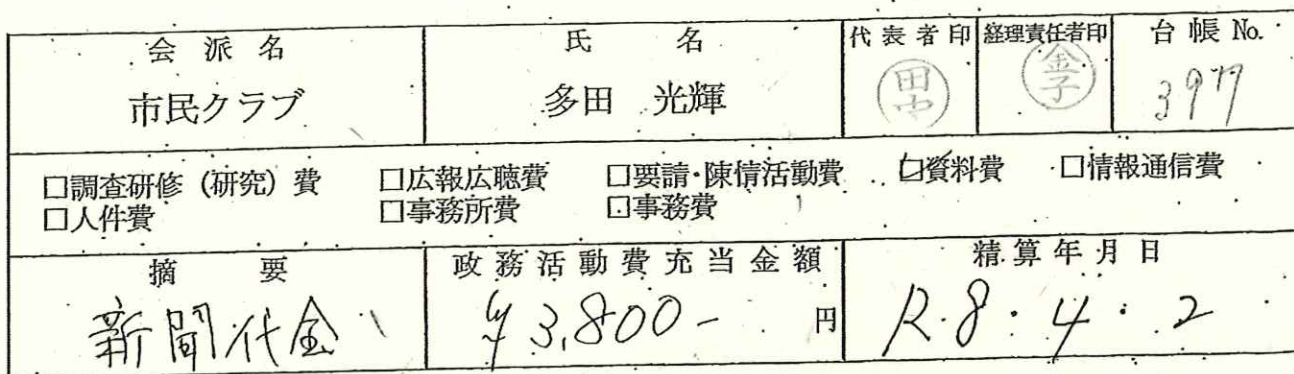 会派名 氏名 代表者印 経理責任者印 台帳No.
市民クラブ 多田 光輝 田中 金子 3977
□調査研修（研究）費 □広報広聴費 □要請・陳情活動費 ☑資料費 □情報通信費
□人件費 □事務所費 □事務費
摘要 政務活動費充当金額 精算年月日
新聞代金 ¥3,800- 円 R.8.4.2